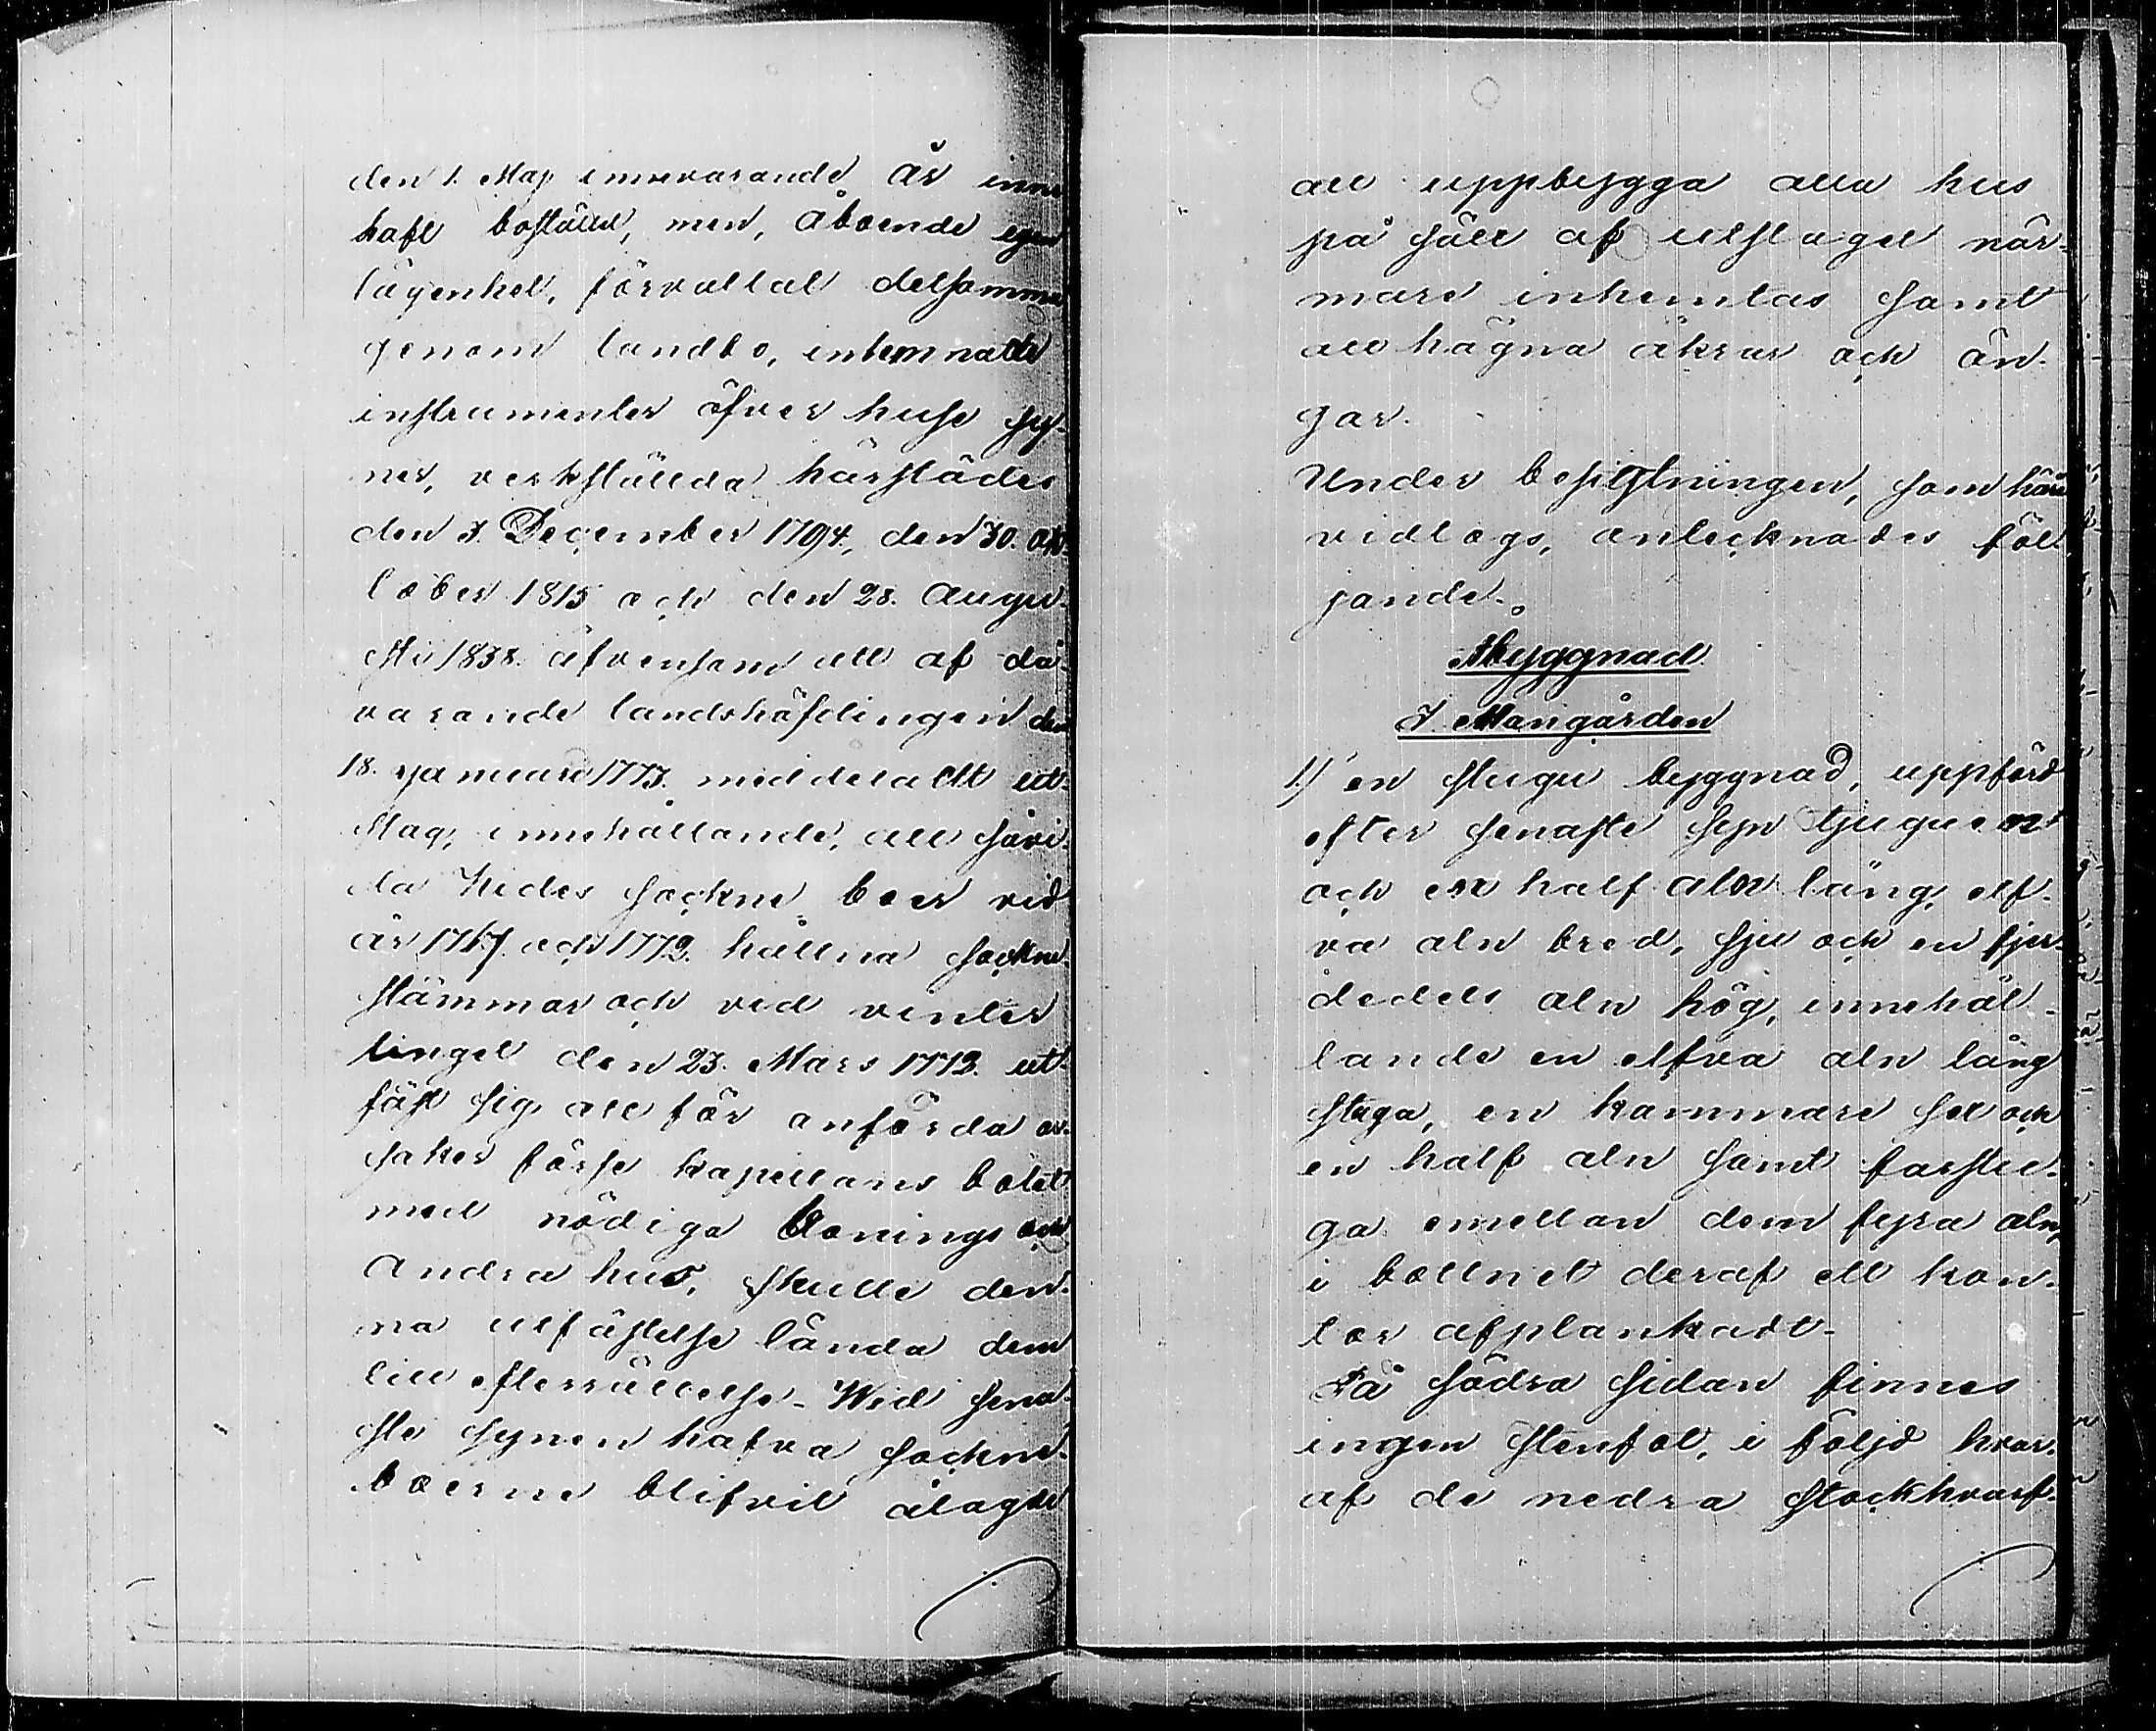 den 1. Maj innevarande år inne
haft boställe, men, åboende egen
lägenhet, förvaltat detsamma
genom landbo, inhemnade
instrumenter öfver huse sy-
ner, verkställda härstädes
den 3. December 1794, den 30. Ok-
tober 1815 och den 28. Augu-
sti 1838. äfvensom ett af då-
varande landshöfdingen den
18. Januari 1773. meddeladt ut-
slag, innehållande, att såvi-
da Kides sockne boer vid
år 1767. och 1772. hållna sockne-
stämmor och vid vinter
tinget den 23. Mars 1773. ut-
fäst sig att för anförda or-
saker förse kapellans bolet
med nödiga bonings och
Andra hus, skulle den-
na utfästelse lända dem
till efterrättelse. Wid sena-
ste synen hafva sockne-
boerne blifvit ålagde
att uppbygga alla hus
på sätt af utslaget när-
mare inhemtas samt
att hägna åkrar och än-
gar.
Under besigtningen, som här
vidtogs, antecknades föl-
jande.
Åbyggnad
I. Mangården
1.) en stugu byggnad, uppförd
efter senaste syn tjugu en
och en half aln lång, elf-
va aln bred, sju och en fjer-
dedels aln hög, innehål-
lande en elfva aln lång
stuga, en kammare sex och
en half aln samt farstu-
ga emellan dem fyra aln,
i bottnet deraf ett kon-
tor afplankadt.
På södra sidan finnes
ingen stenfot, i följd hvar-
af de nedra stockhvarf-